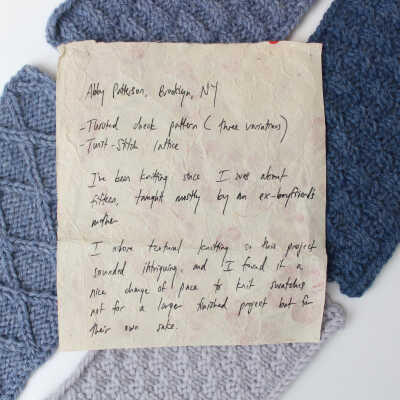 Abby Patterson, Brooklyn, NY
-Twisted check pattern (three variations)
-Twist-Stitch lattice
I've been knitting since I was about
fifteen, taught mostly by an ex-boyfriend's
mother
I adore textural knitting so this project
sounded intriguing, and I found it a
nice change of pace to knit swatches
not for a larger finished project but for
their own sake.